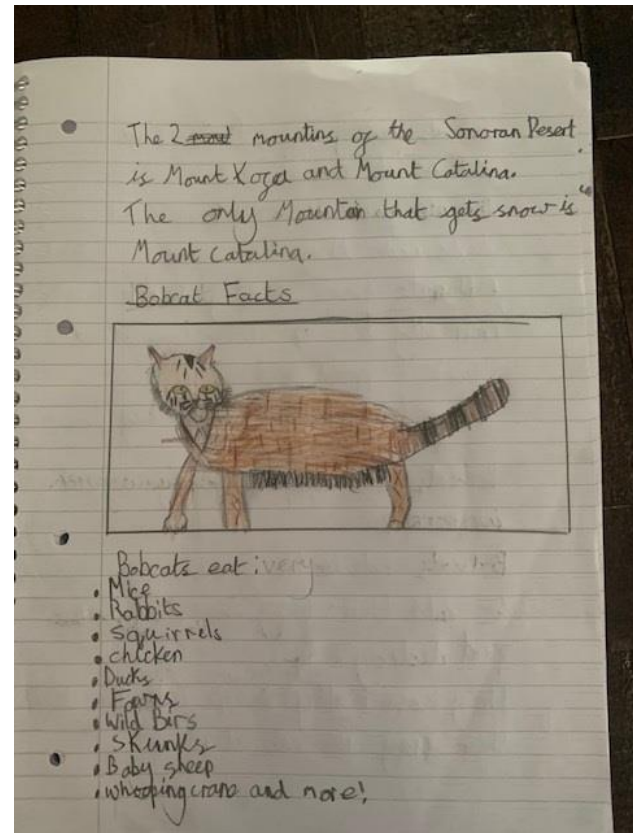 The 2 mountins of the Sonoran Desert
is Mount and Mount Catalina.
The only Mountain that gets snow is
Mount Catalina.
Bobcat Facts
Bobcats eat: very
Mice
Rabbits
squirrels
chicken
Ducks
Fawns
Wild Birs
Skunks
Baby sheep
whooping crane and more!